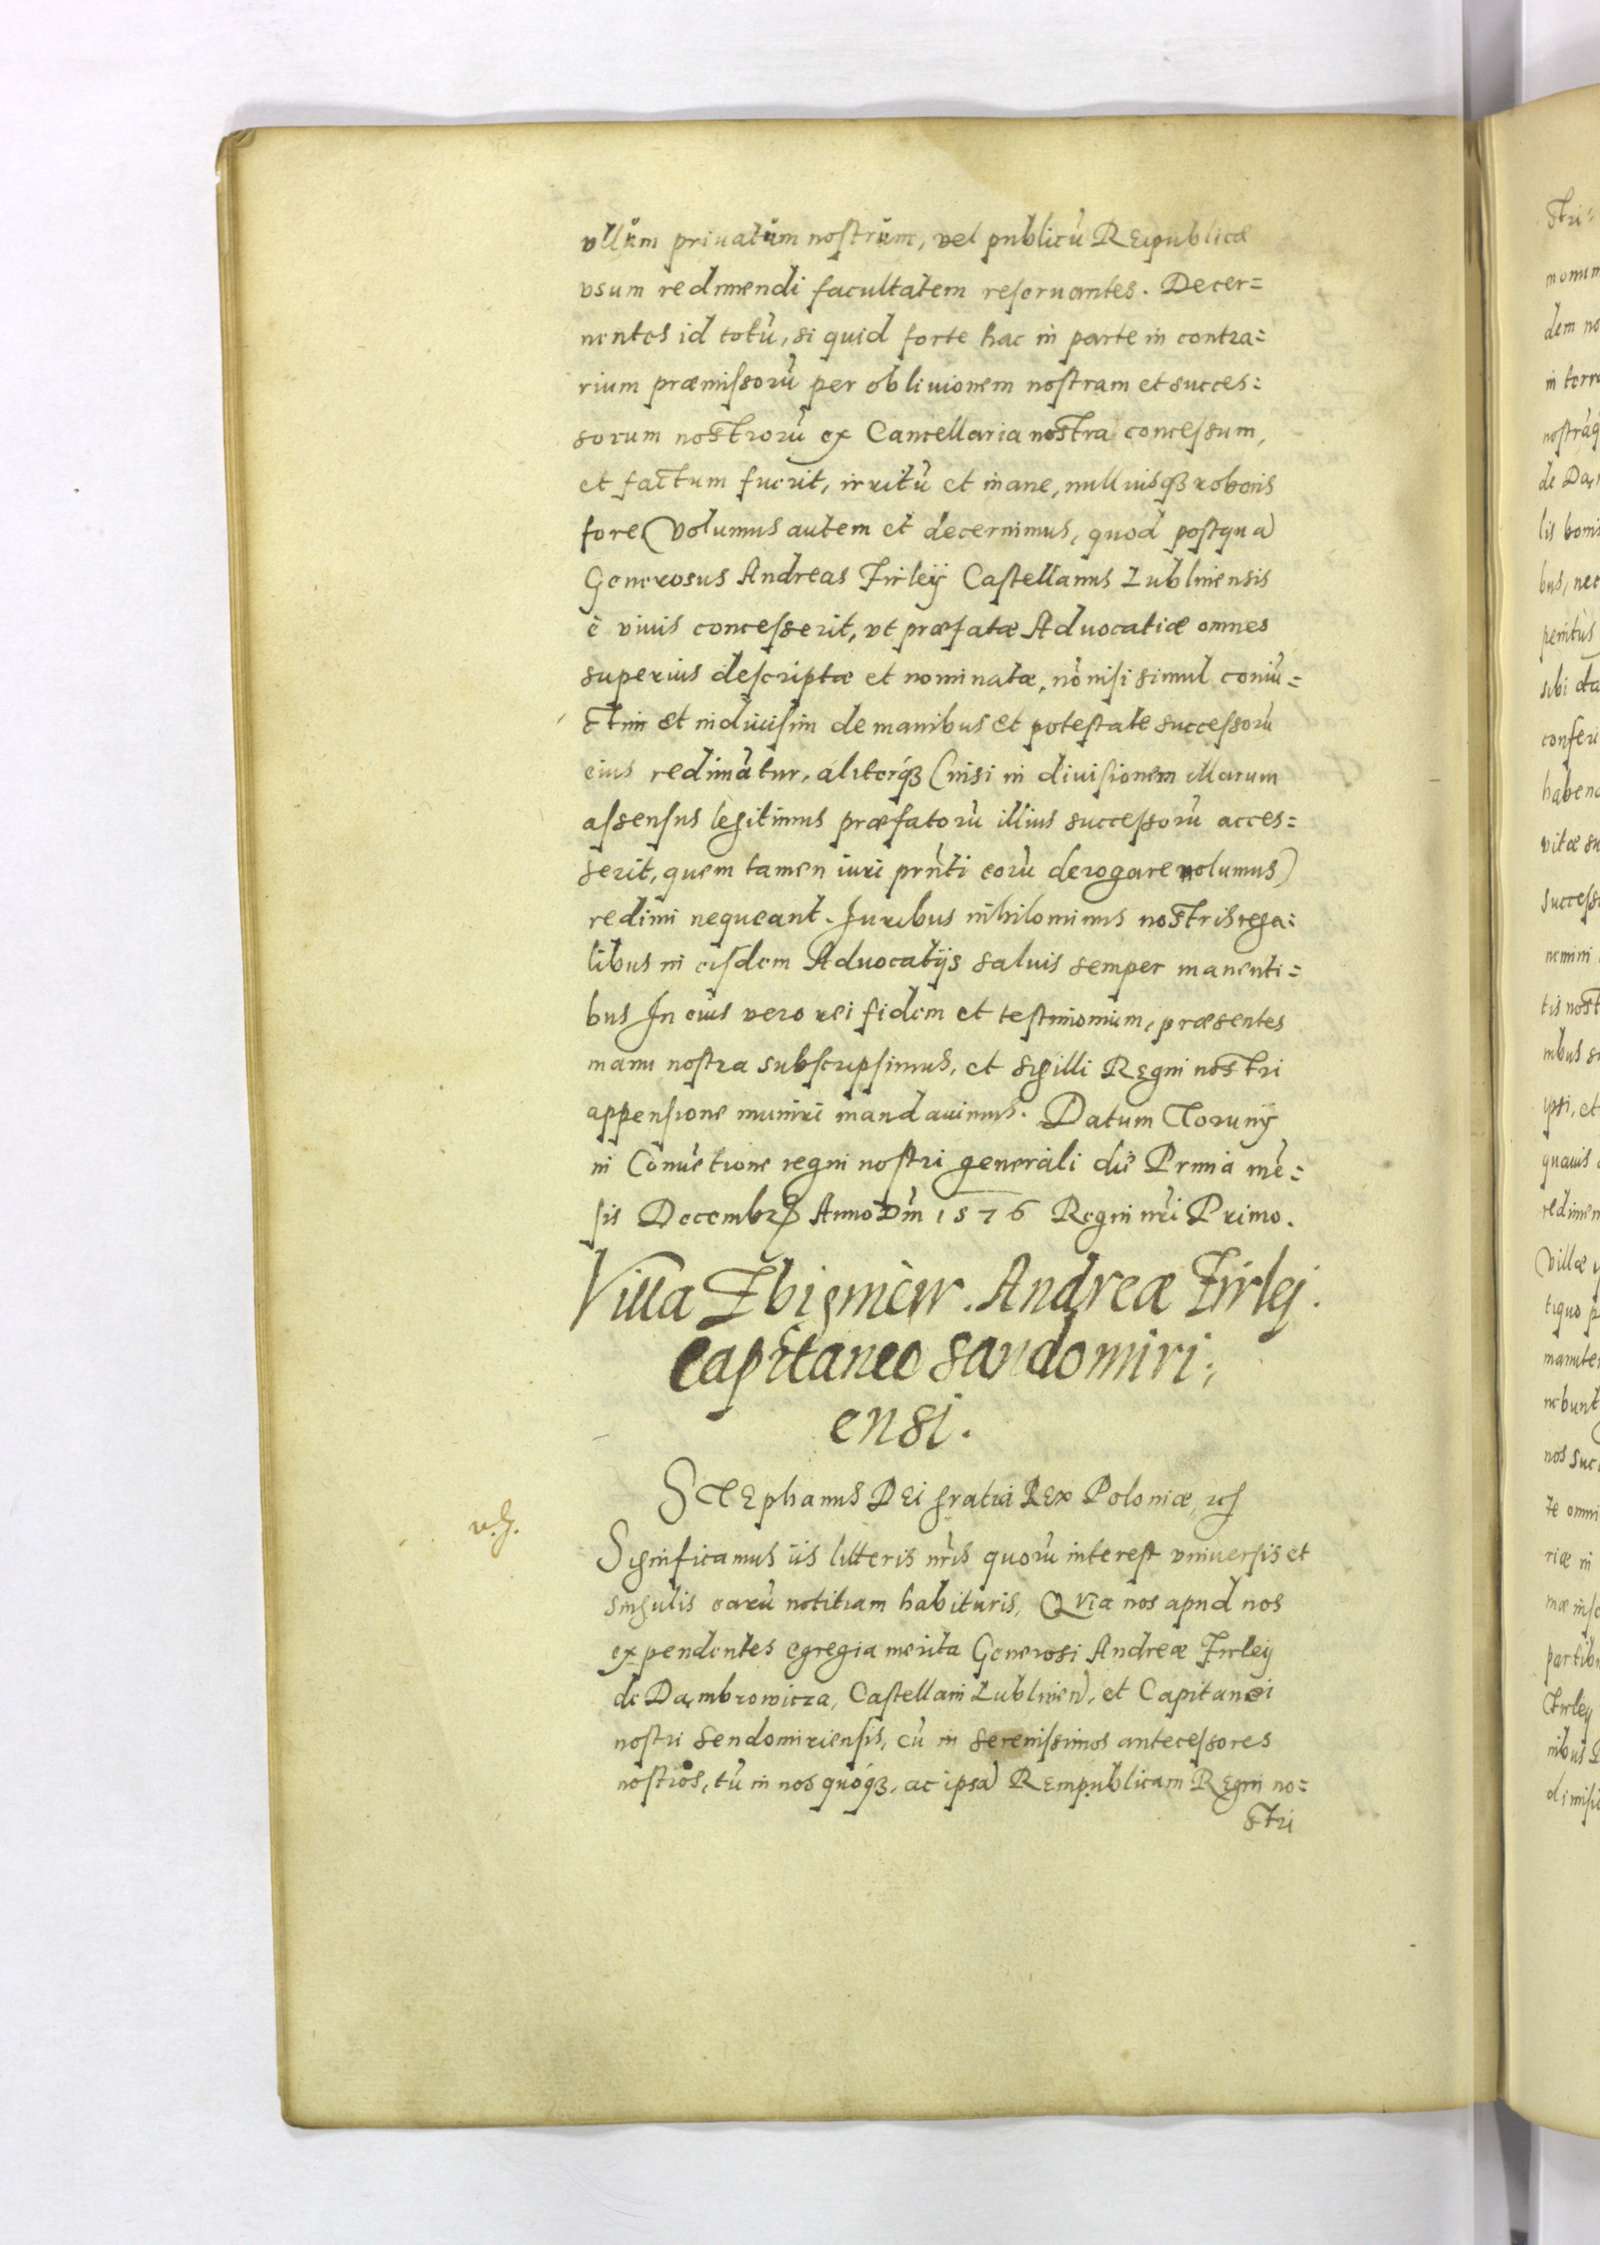 vllum priuatum nostrum, vel publicū REipublicæ
vsum redimendi facultatem reseruantes. Decer=
nentes id totū, si quid forte hac in parte in contra=
rium præmissorū per obliuionem nostram et succes=
sorum nostrorū ex Cancellaria nostra concessum,
et factum fuerit, irritū et inane, nulliusq3 roboris
fore Volumus autem et decernimus, quod postqua
Generosus Andreas Firleÿ Castellanus Lublinensis
è viuis concesserit, vt præfatæ Aduocatiæ omnes
superius descriptæ et nominatæ, nō nisi simul coniū=
ctim et indiuisim de manibus et potestate successorū
eius redimātur, aliterq3 (nisi in diuisionem illarum
assensus legitimus præfatorū illius successorū acces=
serit, quem tamen iuri prn̄ti eorū derogare nolumus)
redimi nequeant. Iuribus nihilominus nostris rega=
libus in eisdem Aduocatijs saluis semper manenti=
bus In cuius vero rei fidem et testimonium, præsentes
manu nostra subscripsimus, et sigilli Regni nostri
appensione muniri mandauimus. Datum Torunÿ
in Conuētione regni nostri generali die Prima mē=
sis Decembr Anno Dn̄i 1576 Regni nr̄i Primo.
Villa Zbigniew. Andreæ Firlej.
Capitaneo sandomiri,
ensi.
STEphanus DEi gratia REx Poloniæ, etc
v.g.
Significamus iis litteris nr̄is quorū interest vniuersis et
singulis earū notitiam habituris, QVia nos apud nos
expendentes egregia merita Generosi Andreæ Firleÿ
de Dąmbrowicza, Castellani Lublinen, et Capitanei
nostri Sendomiriensis, cū in serenissimos antecessores
nostros, tū in nos quóq3, ac ipsa REmpublicam REgni no=
stri